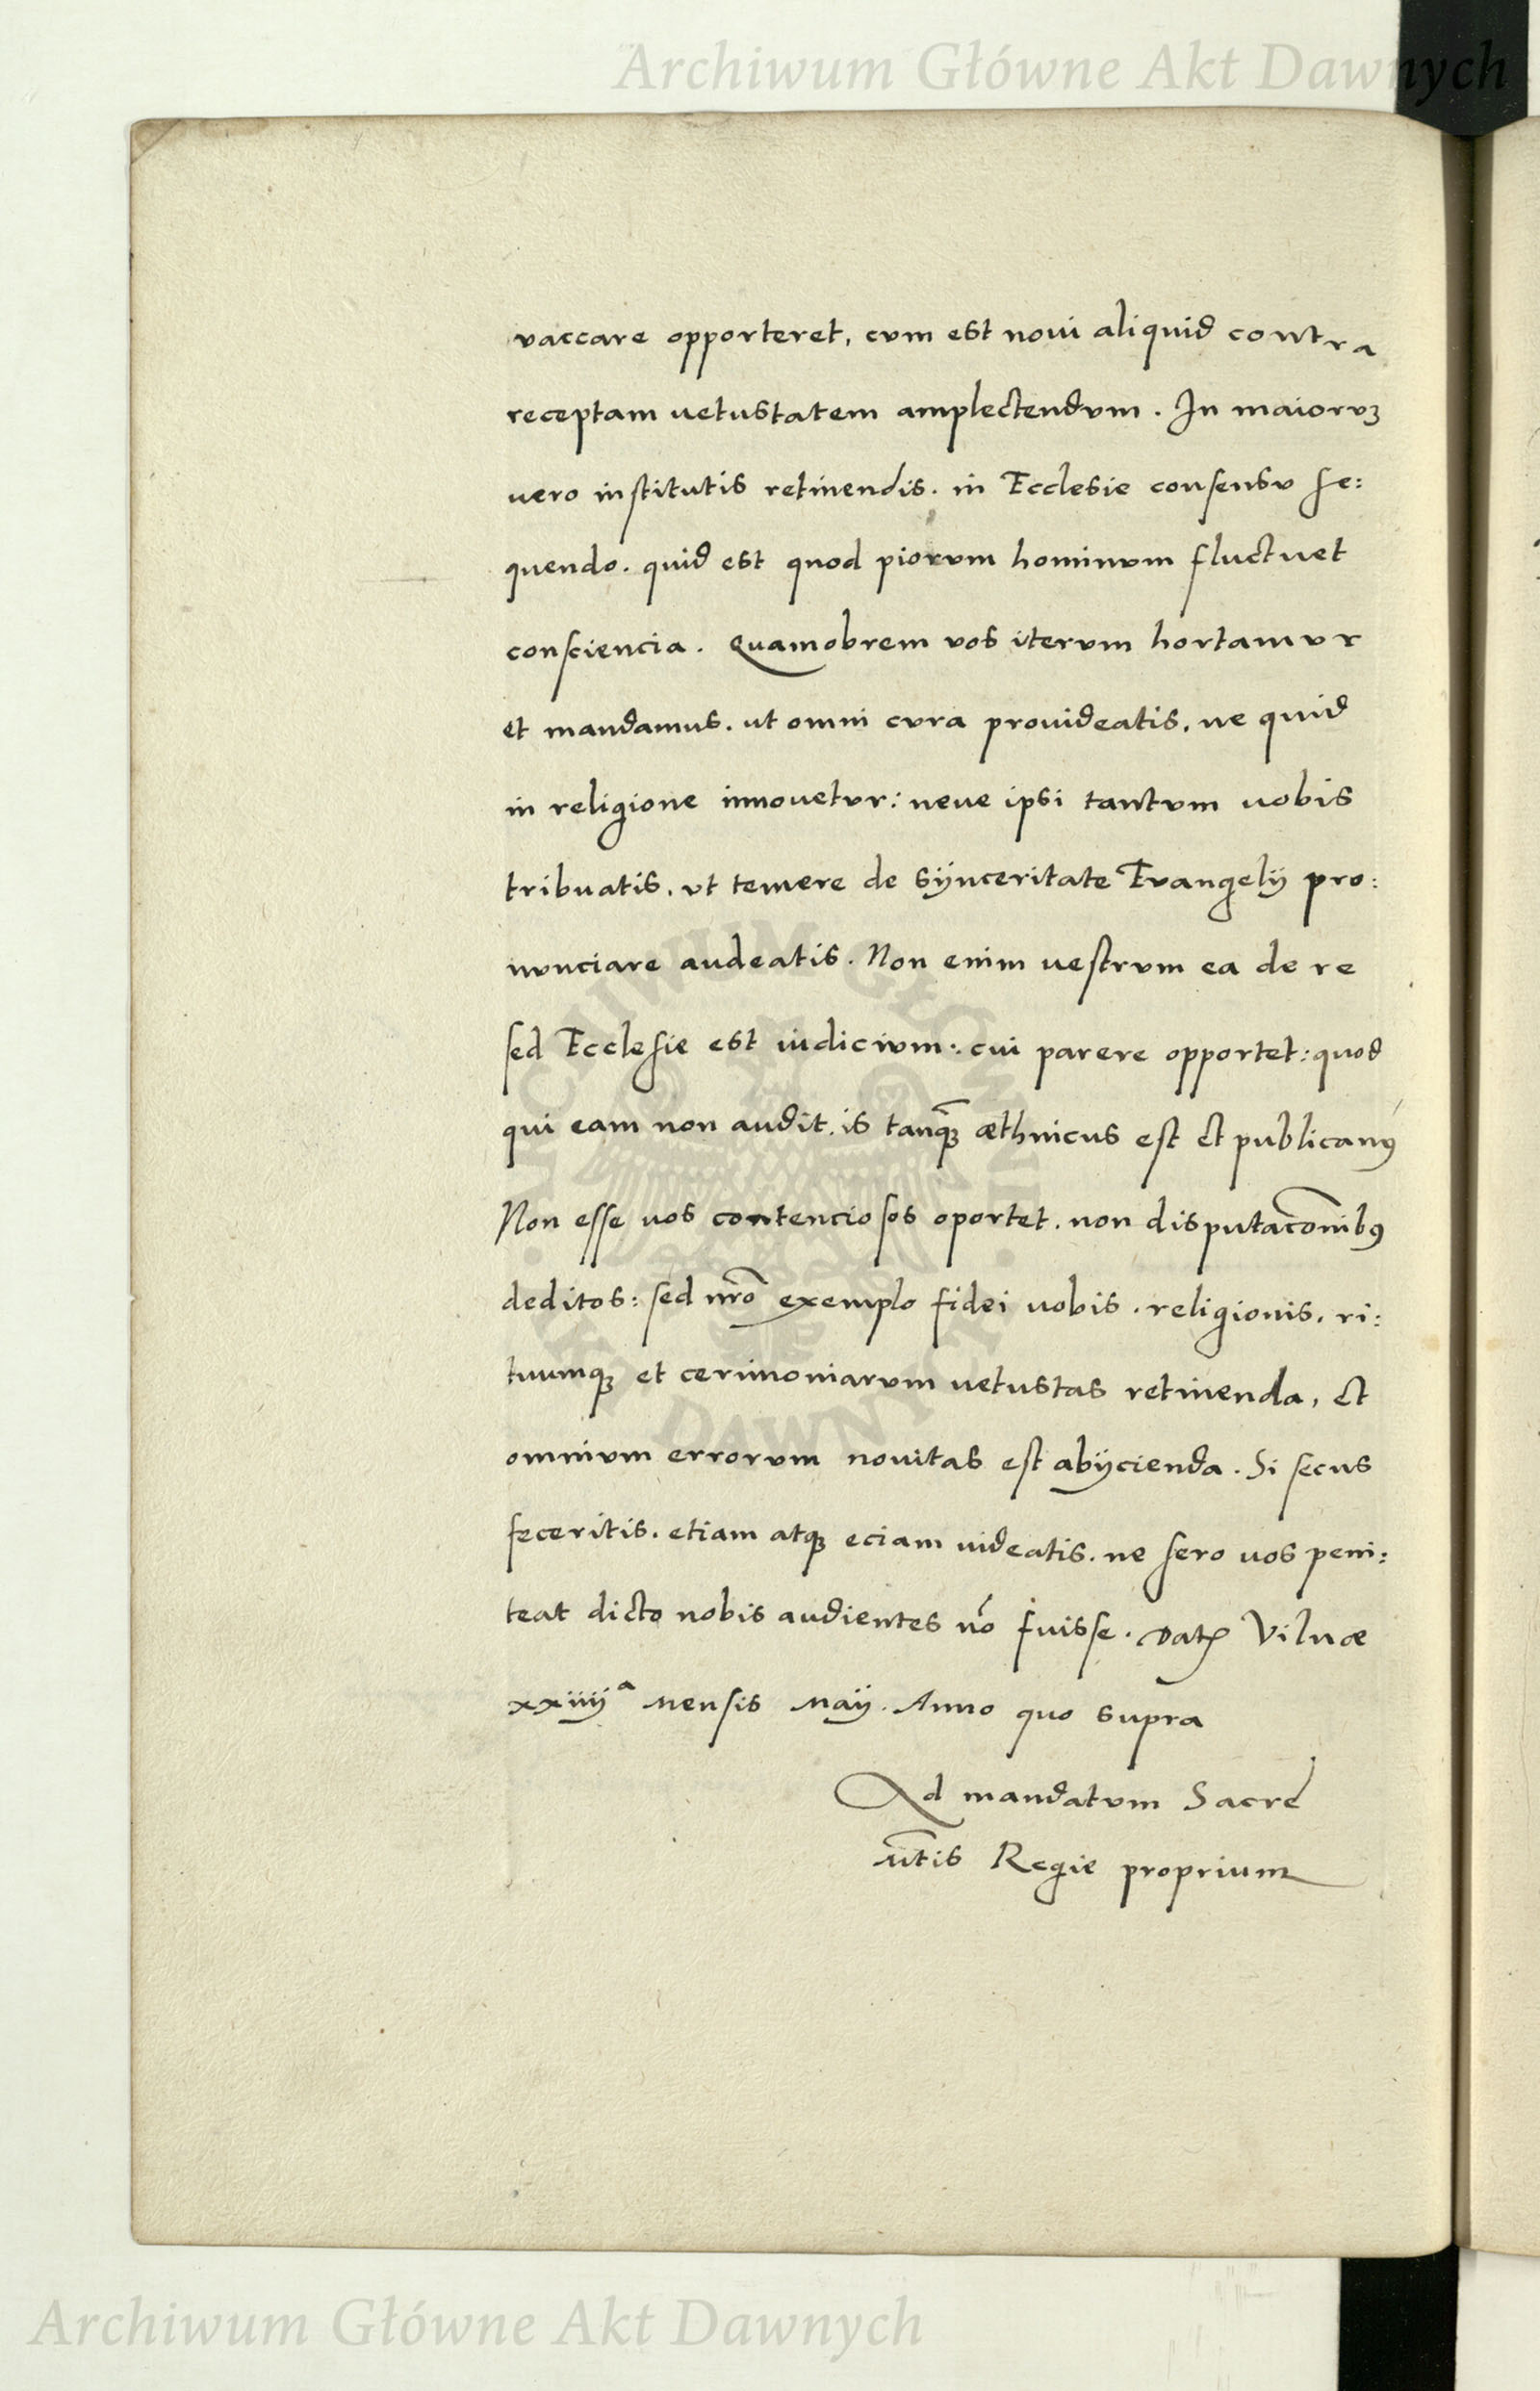 Archiwum Główne Akt Dawnych
vaccare opporteret, cvm est noui aliquid contra
receptam uetustatem amplectendvm. In maiorvꝫ
uero institutis retinendis. in Ecclesie consensv se:
quendo. quid est quod piorvm hominvm fluctuet
consciencia. Quamobrem vos itervm hortamvr
et mandamus. ut omni cvra prouideatis. ne quid
in religione innouetvr: neue ipsi tantvm uobis
tribuatis. vt temere de sÿnceritate Evangelÿ pro:
nvnciare audeatis. Non enim uestrvm ea de re
sed Ecclesie est iudicivm: cui parere opportet: quod
qui eam non audit. is tanq̃ꝫ æthnicus est et publicanꝰ
Non esse uos contenciosos oportet. non disputacõnibꝰ
deditos: sed nr̃o exemplo fidei uobis. religionis. ri:
tuumqꝫ et cerimoniarvm uetustas retinenda, et
omnivm errorvm nouitas est abÿcienda. Si secus
feceritis. etiam atqꝫ eciam uideatis. ne sero uos peni:
teat dicto nobis audientes nõ fuisse. Datꝭ Vilnæ
xxiiijᵃ Mensis Maÿ. Anno quo supra
Ad mandatvm Sacre
Mt̃is Regie proprium
ARCHIWUM GŁÓWNE AKT DAWNYCH
Archiwum Główne Akt Dawnych